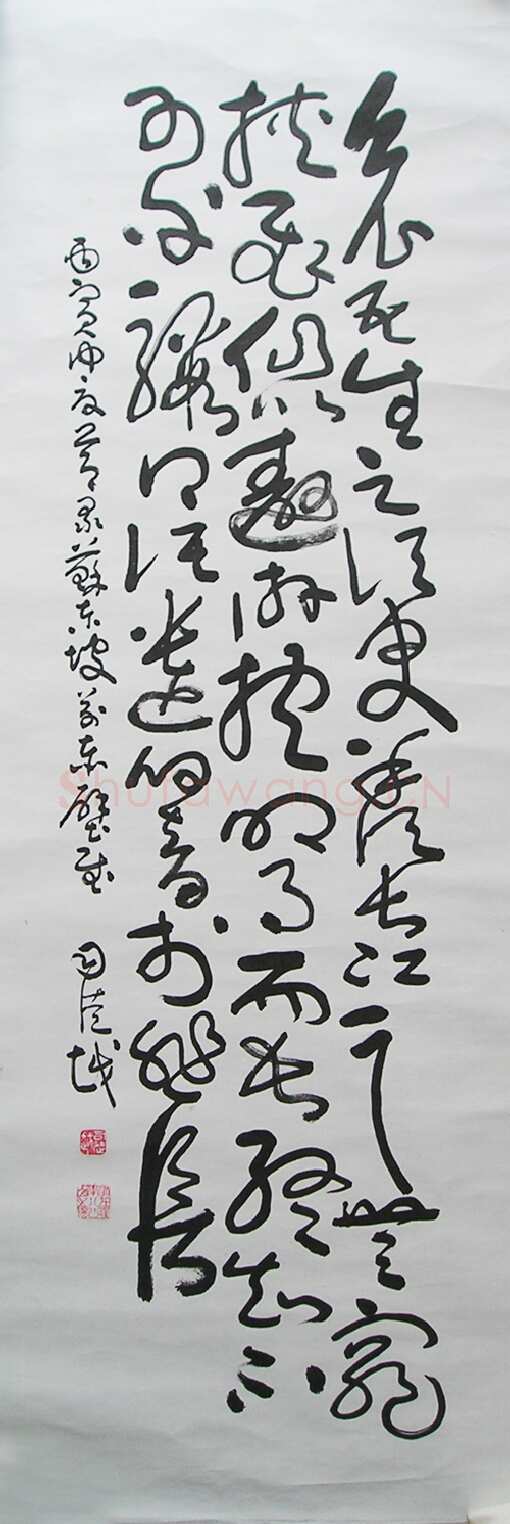 哀吾生之須臾羨長江之無窮
挾飛仙以遨游抱明月而長終知不
可乎驟得託遺響於悲風
丙寅仲夏節录蘇東坡前赤壁賦
Shufawang.CN